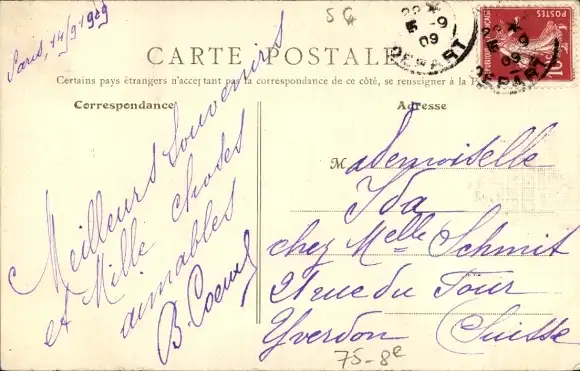 Paris, 14/9/1909
54
CARTE POSTALE
Certains pays étrangers n'acceptant pas la correspondance de ce côté, se renseigner à la
Correspondance
Adresse
Meilleurs Souvenirs
et Mille choses
aimables
B.
Mademoiselle
Ida
chez Melle Schmit
21 rue du Four
Yverdon (Suisse
75-8e
5 9
09
DEPART
5 9
09
DEPART
POSTES
10